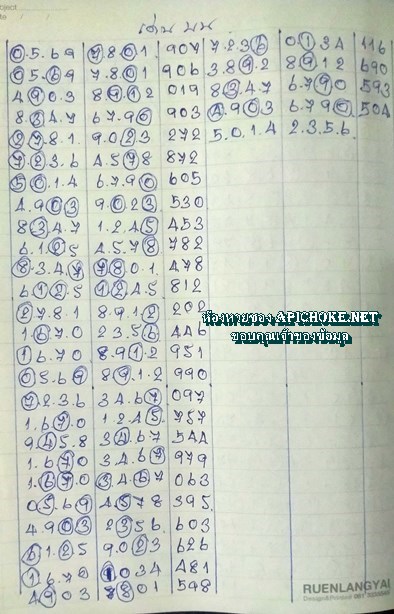 เด่น บน
0.5.6.9 7.8.0.1 907 7.2.3.6 0.1.3.4 116
0.5.6.9 7.8.0.1 906 3.8.9.2 8.9.1.2 690
4.9.0.3 8.9.1.2 019 8.3.4.7 6.7.9.0 593
8.3.4.7 6.7.9.0 903 4.9.0.3 6.7.9.0 504
2.7.8.1 9.0.2.3 272 5.0.1.4 2.3.5.6
7.2.3.6 4.5.7.8 872
5.0.1.4 6.7.9.0 605
4.9.0.3 9.0.2.3 530
8.3.4.7 1.2.4.5 453
6.1.2.5 4.5.7.8 782
8.3.4.7 7.8.0.1 478
6.1.2.5 1.2.4.5 812
2.7.8.1 8.9.1.2 202
1.6.7.0 2.3.5.6 446
1.6.7.0 8.9.1.2 951
0.5.6.9 8.9.1.2 990
7.2.3.6 3.4.6.7 097
1.6.7.0 1.2.4.5 757
9.4.5.8 3.4.6.7 544
1.6.7.0 3.4.6.7 979
1.6.7.0 3.4.6.7 063
0.5.6.9 4.5.7.8 395
4.9.0.3 2.3.5.6 603
6.1.2.5 9.0.2.3 626
1.6.7.0 0.1.3.4 481
4.9.0.3 7.8.0.1 598
ห้องหวยซอง APICHOKE.NET
ขอบคุณเจ้าของข้อมูล
RUENLANGYAI